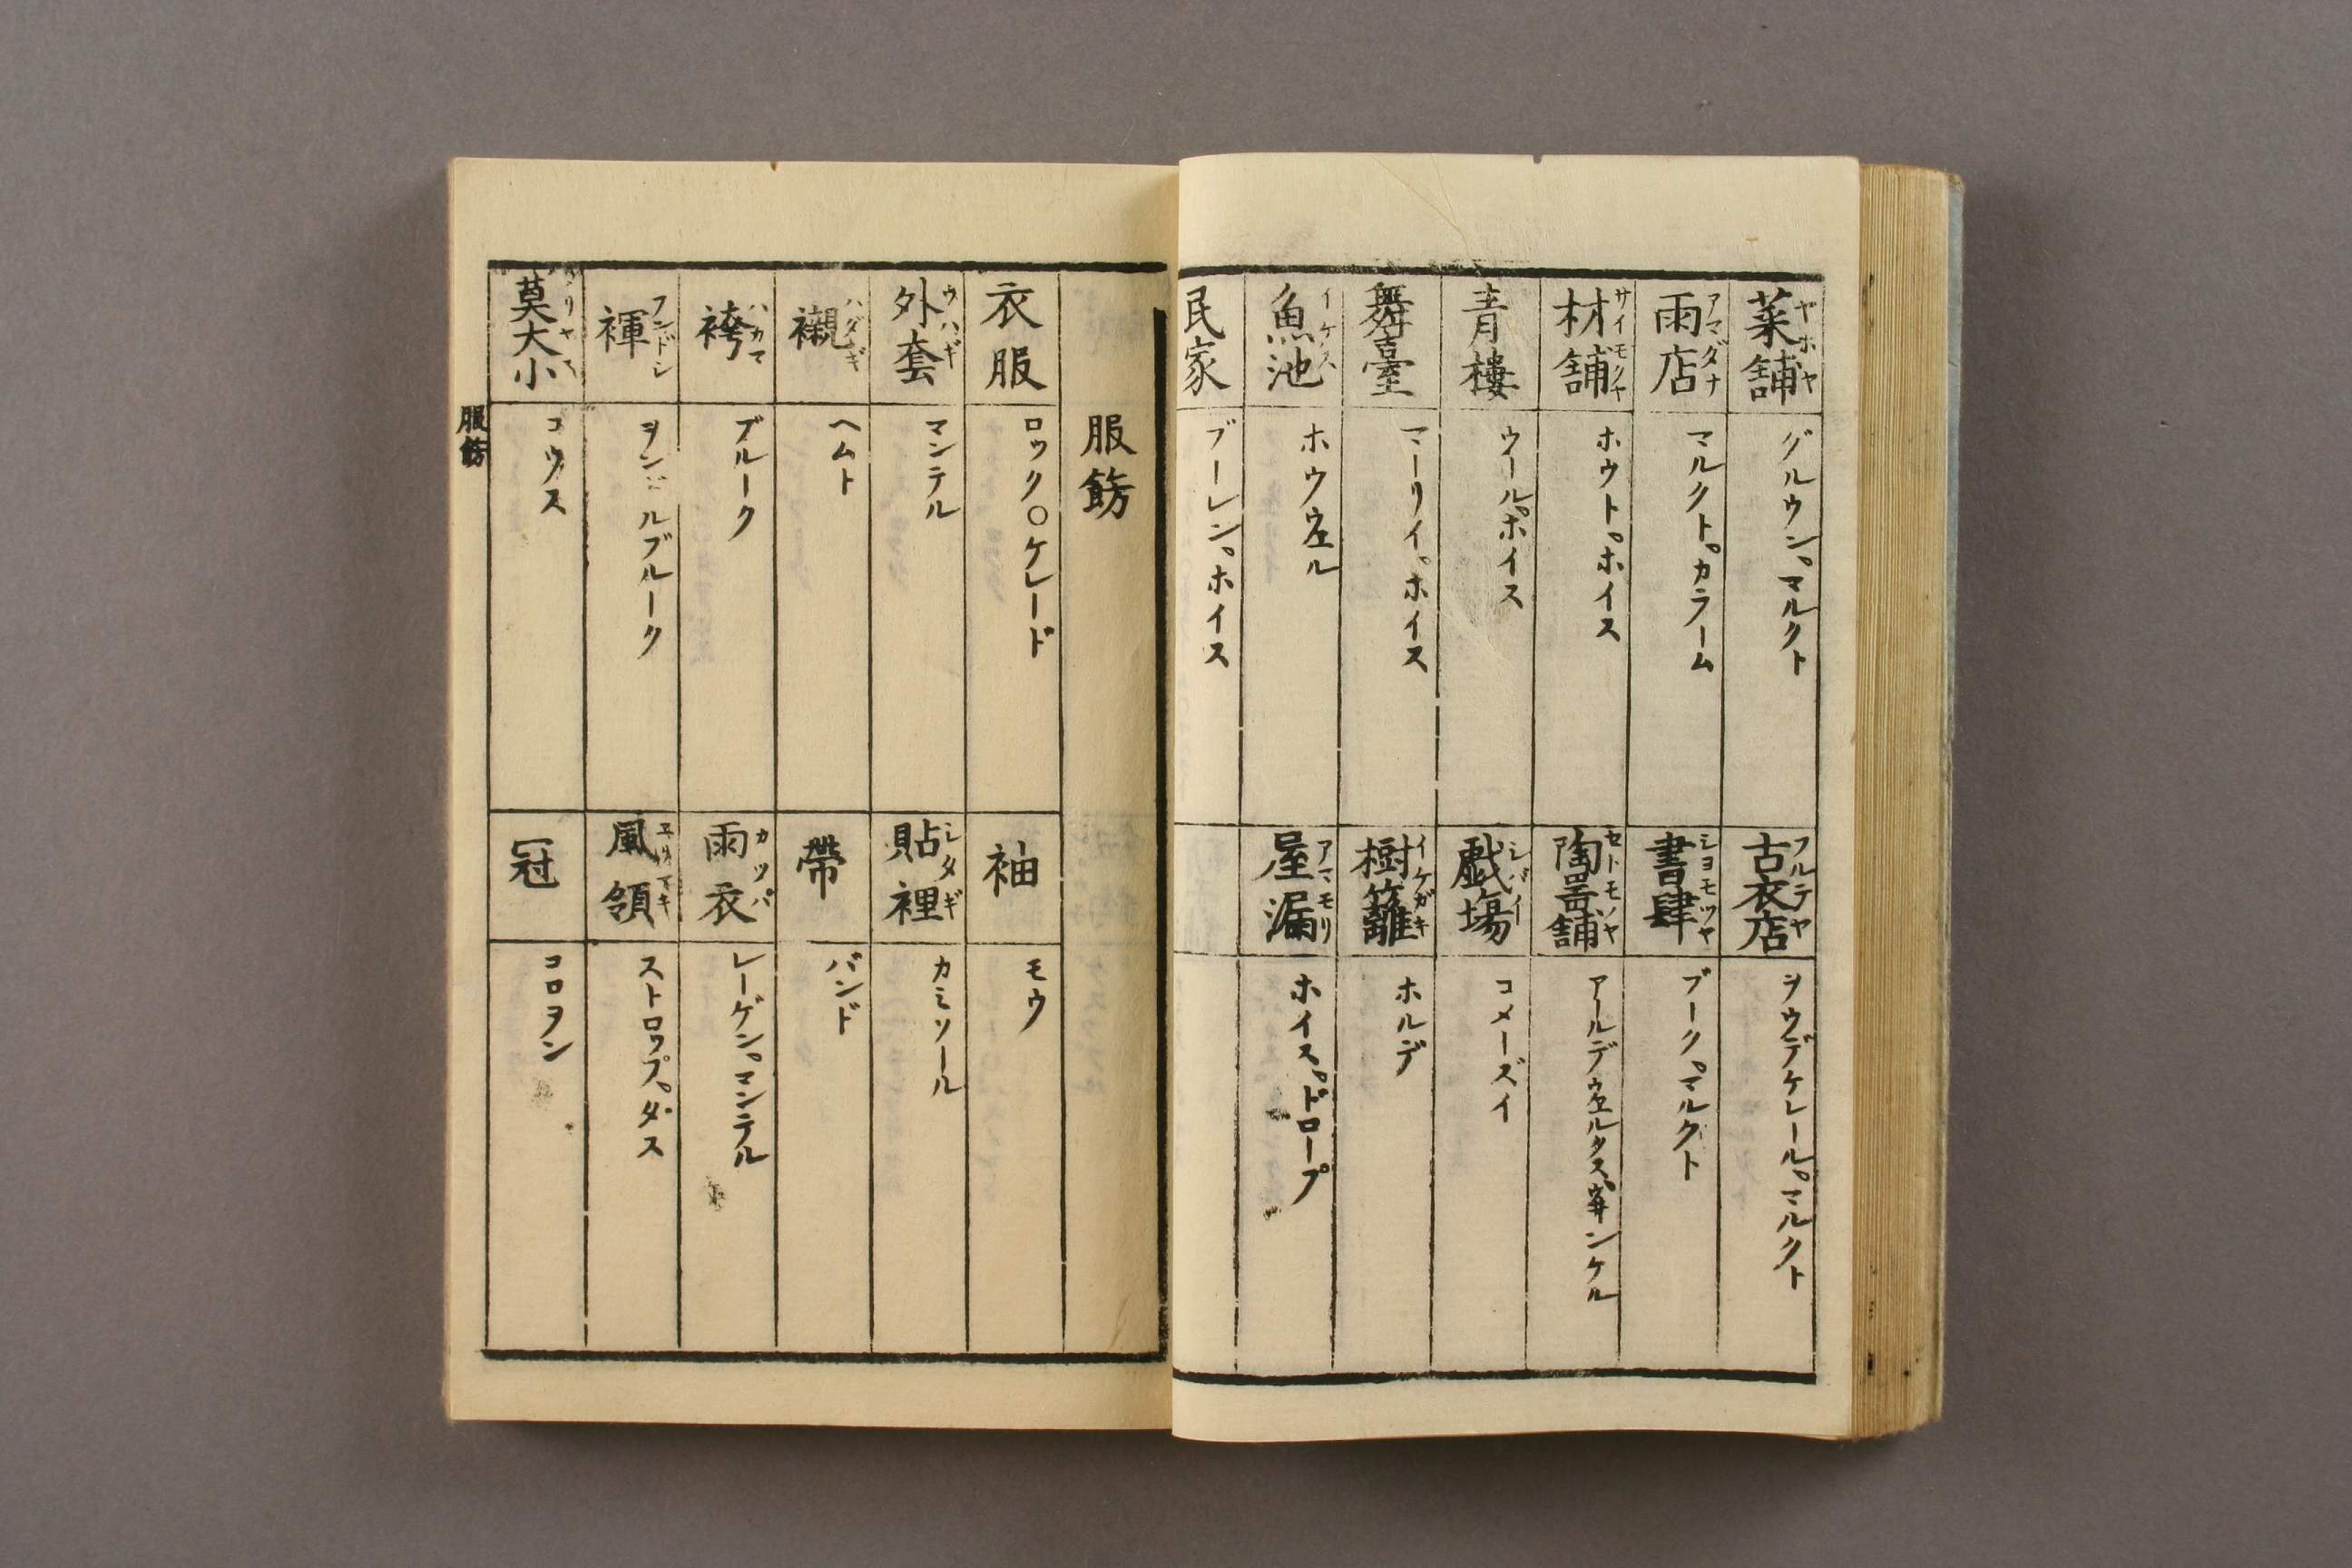 菜舗 ヤホヤ
グルウン。マルクト
雨店 アマダナ
マルクト。カラーム
材舗 サイモクヤ
ホウト。ホイス
青樓
ウール。ホイス
舞臺
マーリイ。ホイス
魚池 イケス
ホウウエル
民家
ブーレン。ホイス
古衣店 フルテヤ
ヲウデケレール。マルクト
書肆 シヨモツヤ
ブーク。マルクト
陶噐舗 セトモノヤ
アールデウエルタス。ンケル
戯塲 シバイ
コメーズイ
樹籬 イケガキ
ホルデ
屋漏 アマモリ
ホイス。ドロープ
服餝
衣服
ロック○ケレード
外套 ウハギ
マンテル
襯 ハダギ
ヘムト
袴 ハカマ
ブルーク
褌 フンドシ
ヲンドルブルーク
莫大小 メリヤス
コウス
袖
モウ
貼裡 シタギ
カミソール
帶
バンド
雨衣 カッパ
レーゲン。マンテル
風領 エリマキ
ストロップ。ダス
冠
コロヲン
服餝